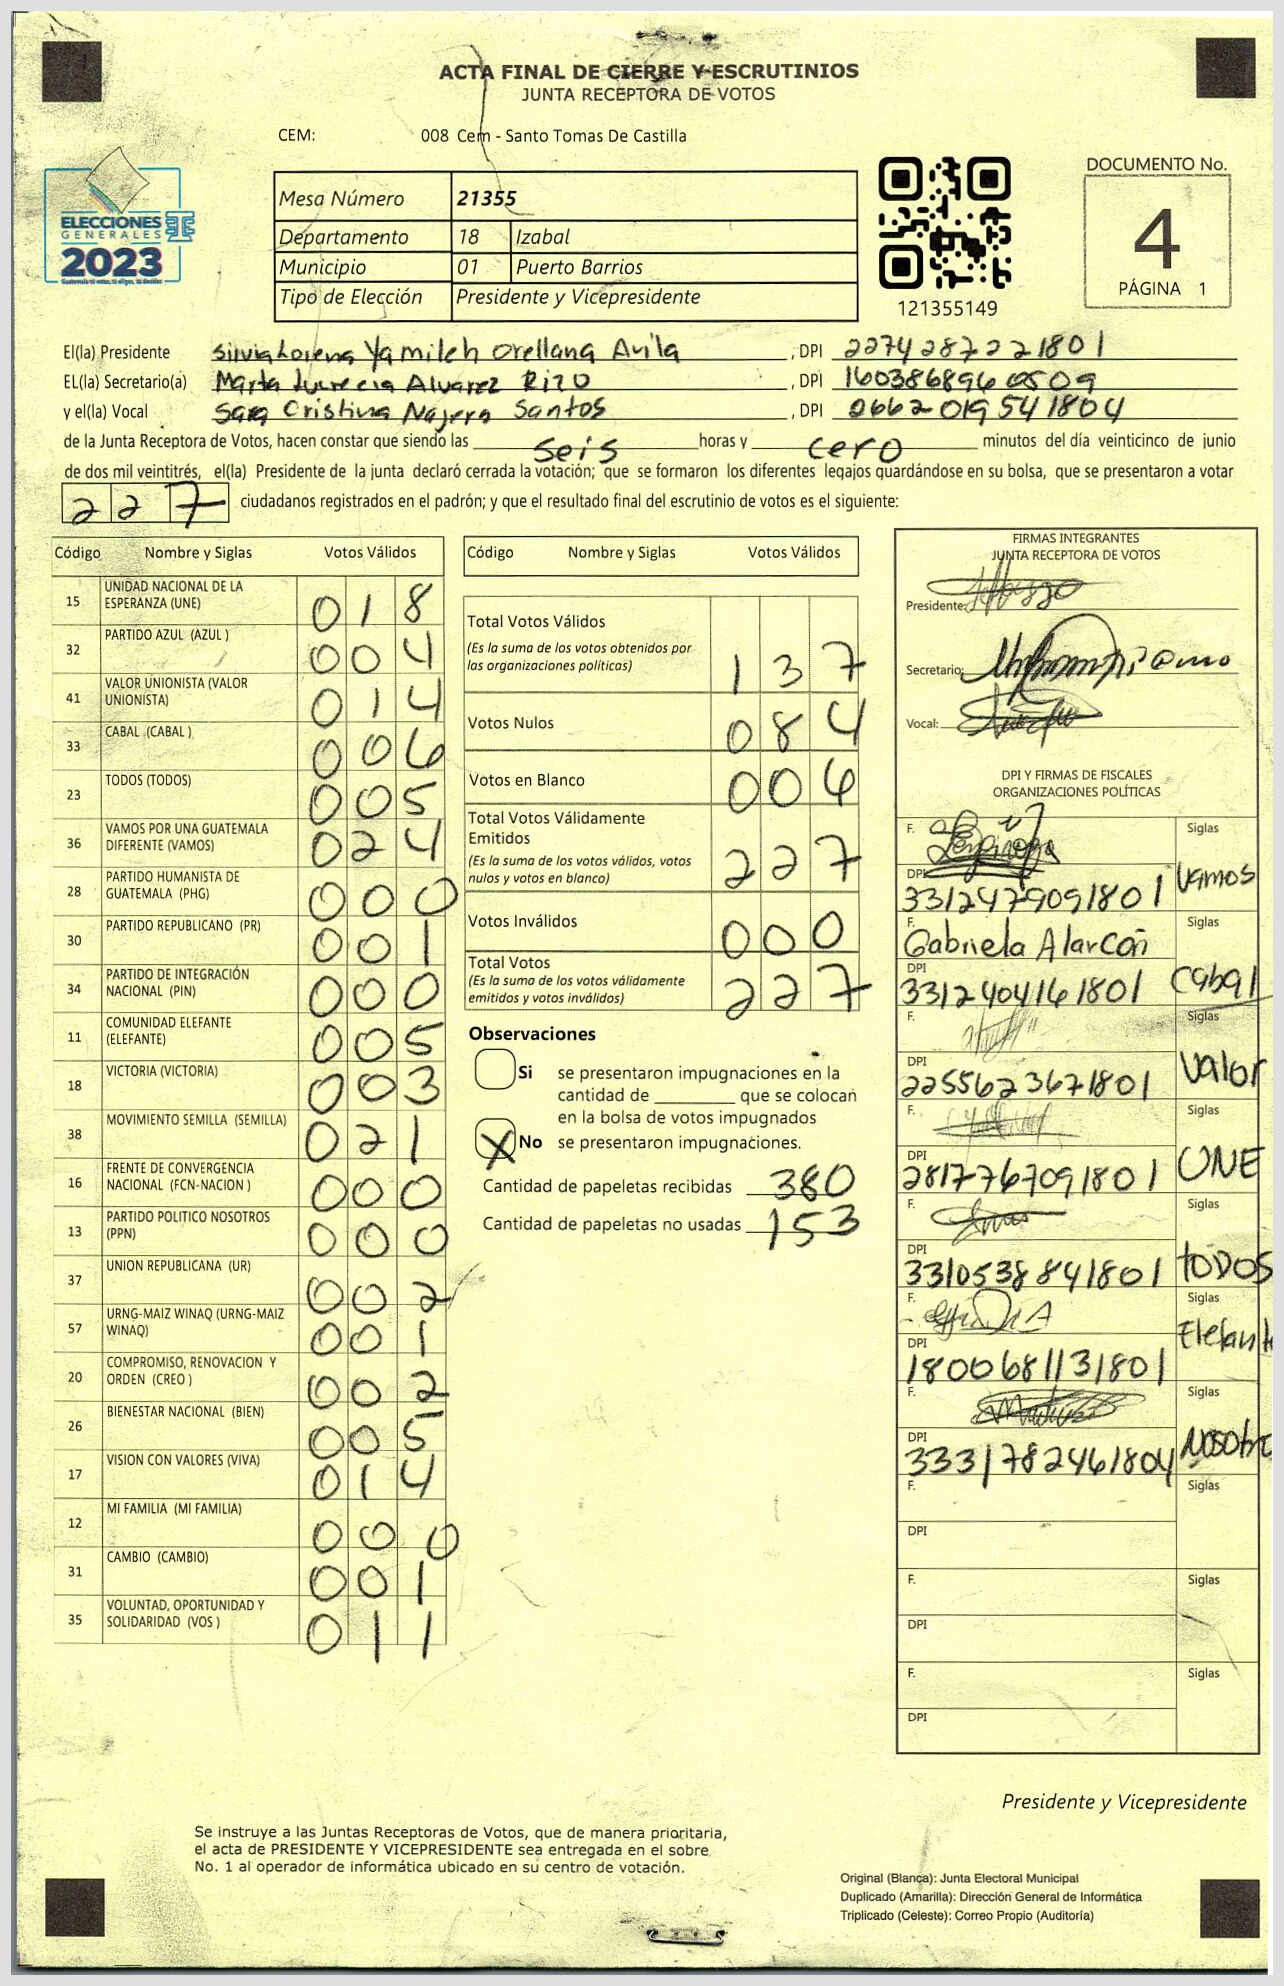 ACTA FINAL DE CIERRE Y ESCRUTINIOS
JUNTA RECEPTORA DE VOTOS
CEM: 008 Cem - Santo Tomas De Castilla
ELECCIONES
GENERALES
2023
Mesa Número 21355
Departamento 18 Izabal
Municipio 01 Puerto Barrios
Tipo de Elección Presidente y Vicepresidente
121355149
DOCUMENTO No.
4
PÁGINA 1
El(la) Presidente Silvia Lorena Yamileh Orellana Avila, DPI 2274287221801
EL(la) Secretario(a) Marta Lucrecia Alvarez Rizo, DPI 1603868960509
y el(la) Vocal Sara Cristina Najera Santos, DPI 2662019541804
de la Junta Receptora de Votos, hacen constar que siendo las seis horas y cero minutos del día veinticinco de junio
de dos mil veintitrés, el(la) Presidente de la junta declaró cerrada la votación; que se formaron los diferentes legajos guardándose en su bolsa, que se presentaron a votar
227 ciudadanos registrados en el padrón; y que el resultado final del escrutinio de votos es el siguiente:
Código Nombre y Siglas Votos Válidos
15 UNIDAD NACIONAL DE LA ESPERANZA (UNE) 018
32 PARTIDO AZUL (AZUL ) 004
41 VALOR UNIONISTA (VALOR UNIONISTA) 014
33 CABAL (CABAL ) 006
23 TODOS (TODOS) 005
36 VAMOS POR UNA GUATEMALA DIFERENTE (VAMOS) 024
28 PARTIDO HUMANISTA DE GUATEMALA (PHG) 000
30 PARTIDO REPUBLICANO (PR) 001
34 PARTIDO DE INTEGRACIÓN NACIONAL (PIN) 000
11 COMUNIDAD ELEFANTE (ELEFANTE) 005
18 VICTORIA (VICTORIA) 003
38 MOVIMIENTO SEMILLA (SEMILLA) 021
16 FRENTE DE CONVERGENCIA NACIONAL (FCN-NACION ) 000
13 PARTIDO POLITICO NOSOTROS (PPN) 000
37 UNION REPUBLICANA (UR) 002
57 URNG-MAIZ WINAQ (URNG-MAIZ WINAQ) 001
20 COMPROMISO, RENOVACION Y ORDEN (CREO ) 002
26 BIENESTAR NACIONAL (BIEN) 005
17 VISION CON VALORES (VIVA) 014
12 MI FAMILIA (MI FAMILIA) 000
31 CAMBIO (CAMBIO) 001
35 VOLUNTAD, OPORTUNIDAD Y SOLIDARIDAD (VOS ) 011
Código Nombre y Siglas Votos Válidos
Total Votos Válidos
(Es la suma de los votos obtenidos por
las organizaciones políticas) 137
Votos Nulos 084
Votos en Blanco 006
Total Votos Válidamente
Emitidos
(Es la suma de los votos válidos, votos
nulos y votos en blanco) 227
Votos Inválidos 000
Total Votos
(Es la suma de los votos válidamente
emitidos y votos inválidos) 227
Observaciones
Si se presentaron impugnaciones en la
cantidad de ________ que se colocan
en la bolsa de votos impugnados
X No se presentaron impugnaciones.
Cantidad de papeletas recibidas 380
Cantidad de papeletas no usadas 153
FIRMAS INTEGRANTES
JUNTA RECEPTORA DE VOTOS
Presidente:
Secretario:
Vocal:
DPI Y FIRMAS DE FISCALES
ORGANIZACIONES POLÍTICAS
F. Siglas
DPI 3312479091801 Vamos
F. Gabriela Alarcón Siglas
DPI 3312404161801 Cabal
F. Siglas
DPI 2255623671801 Valor
F. Siglas
DPI 2817767091801 UNE
F. Siglas
DPI 3310538841801 TODOS
F. Siglas
DPI 1800681131801 Elefant
F. Siglas
DPI 3331782461804 Nosotro
F. Siglas
DPI
F. Siglas
DPI
F. Siglas
DPI
Presidente y Vicepresidente
Se instruye a las Juntas Receptoras de Votos, que de manera prioritaria,
el acta de PRESIDENTE Y VICEPRESIDENTE sea entregada en el sobre
No. 1 al operador de informática ubicado en su centro de votación.
Original (Blanca): Junta Electoral Municipal
Duplicado (Amarilla): Dirección General de Informática
Triplicado (Celeste): Correo Propio (Auditoría)